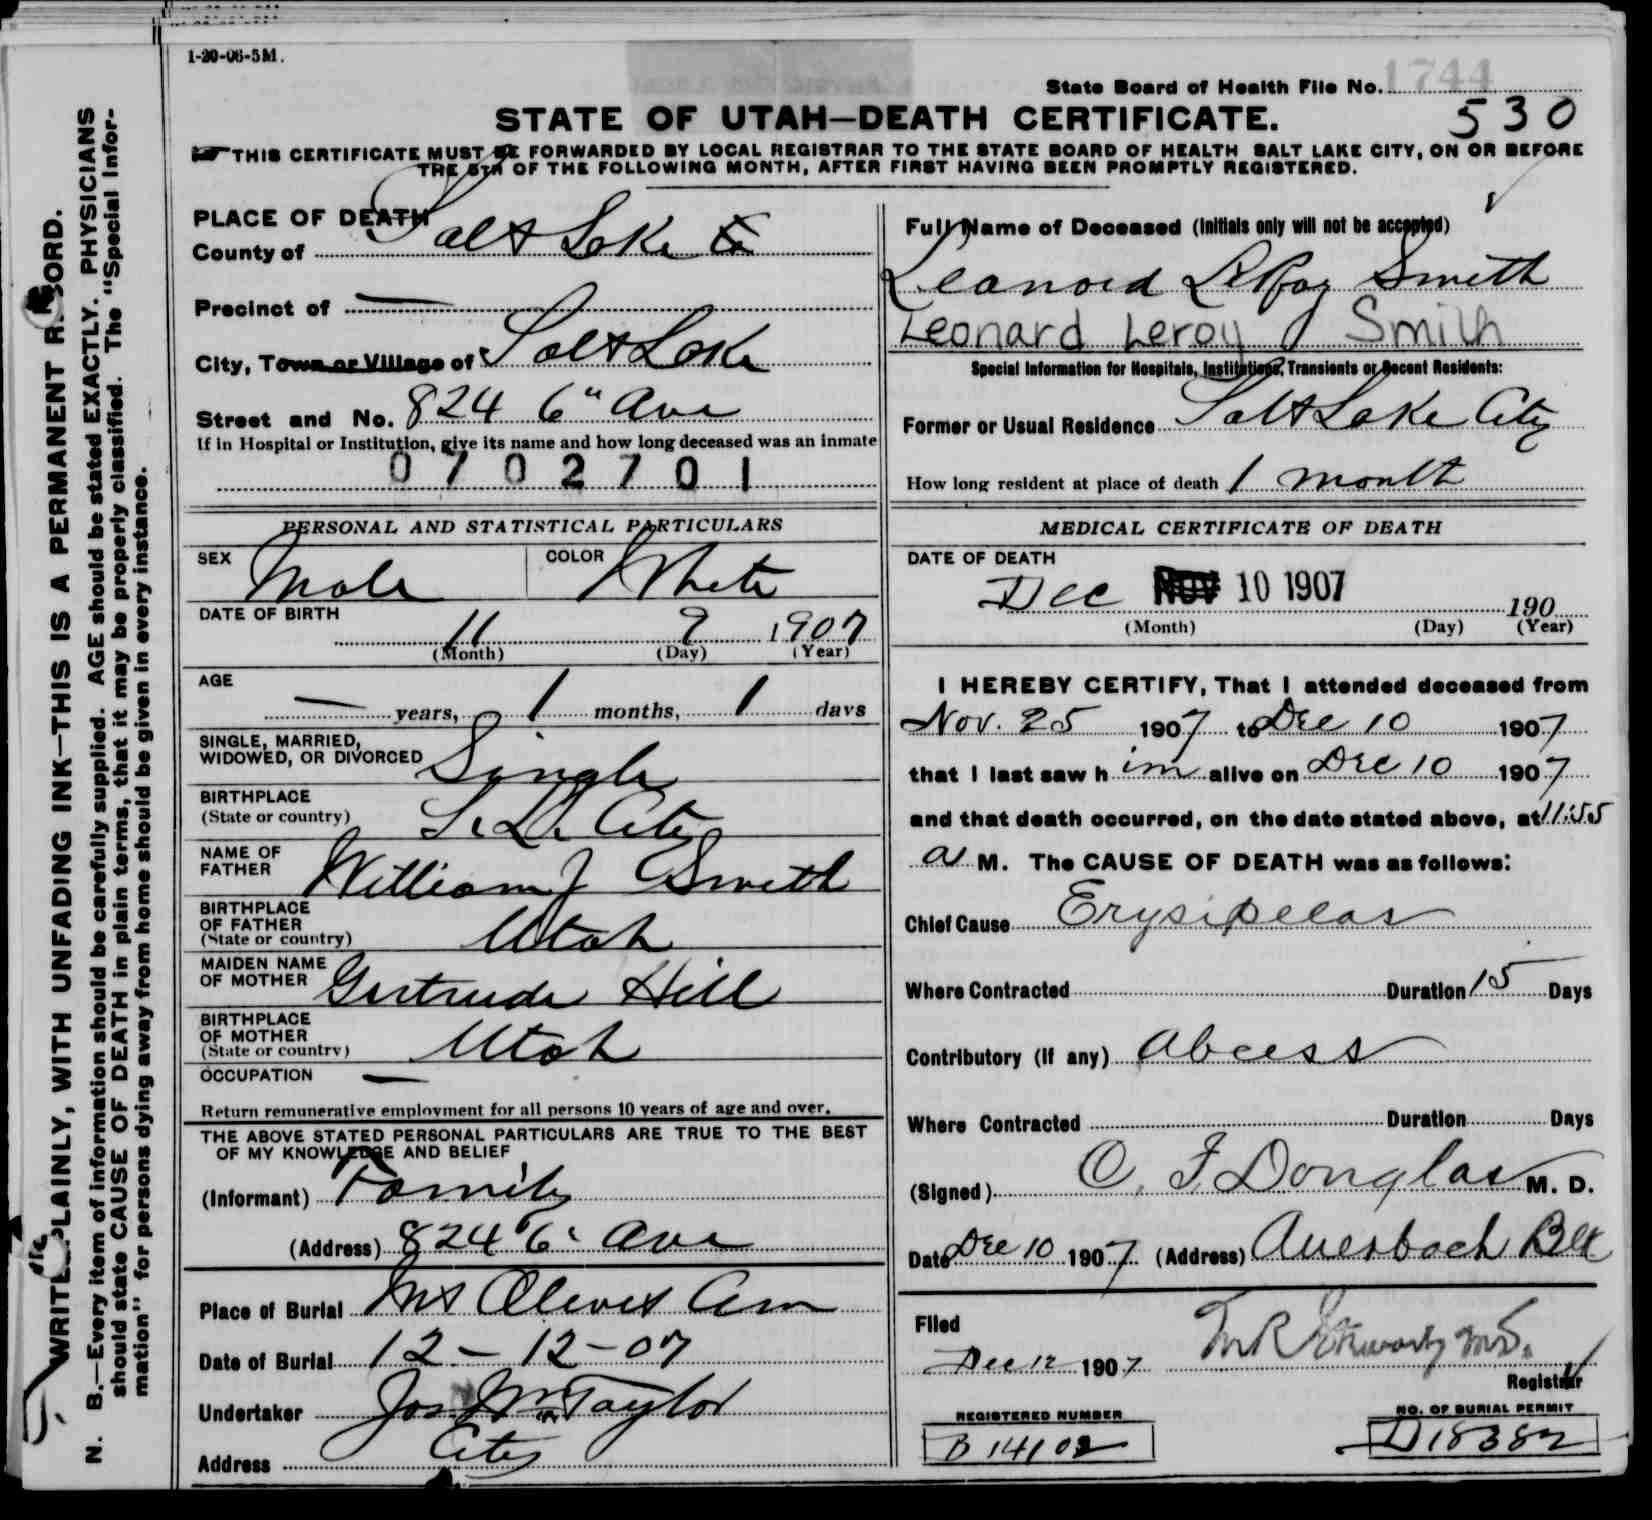 1-20-06-5M.
State Board of Health File No. 1744
530
STATE OF UTAH—DEATH CERTIFICATE.
THIS CERTIFICATE MUST BE FORWARDED BY LOCAL REGISTRAR TO THE STATE BOARD OF HEALTH SALT LAKE CITY, ON OR BEFORE
THE 5TH OF THE FOLLOWING MONTH, AFTER FIRST HAVING BEEN PROMPTLY REGISTERED.
PLACE OF DEATH
County of Salt Lake Co
Precinct of —
City, Town or Village of Salt Lake
Street and No. 824 6" Ave
If in Hospital or Institution, give its name and how long deceased was an inmate
0702701
Full Name of Deceased (Initials only will not be accepted)
Leanord LeRoy Smith
Leonard Leroy Smith
Special Information for Hospitals, Institutions, Transients or Recent Residents:
Former or Usual Residence Salt Lake City
How long resident at place of death 1 month
PERSONAL AND STATISTICAL PARTICULARS
SEX Male COLOR White
DATE OF BIRTH
11 9 1907
(Month) (Day) (Year)
AGE
— years, 1 months, 1 days
SINGLE, MARRIED,
WIDOWED, OR DIVORCED Single
BIRTHPLACE
(State or country) S. L. City
NAME OF
FATHER William J Smith
BIRTHPLACE
OF FATHER
(State or country) Utah
MAIDEN NAME
OF MOTHER Gertrude Hill
BIRTHPLACE
OF MOTHER
(State or country) Utah
OCCUPATION —
Return remunerative employment for all persons 10 years of age and over.
THE ABOVE STATED PERSONAL PARTICULARS ARE TRUE TO THE BEST
OF MY KNOWLEDGE AND BELIEF
(Informant) Family
(Address) 824 6" Ave
Place of Burial Mt Olivet Cem
Date of Burial 12-12-07
Undertaker Jos Wm Taylor
Address City
MEDICAL CERTIFICATE OF DEATH
DATE OF DEATH
Dec NOV 10 1907 190
(Month) (Day) (Year)
I HEREBY CERTIFY, That I attended deceased from
Nov. 25 1907 to Dec 10 1907
that I last saw him alive on Dec 10 1907
and that death occurred, on the date stated above, at 11:55
a M. The CAUSE OF DEATH was as follows:
Chief Cause Erysipelas
Where Contracted Duration 15 Days
Contributory (if any) Abcess
Where Contracted Duration Days
(Signed) O. F. Douglas M. D.
Date Dec 10 1907 (Address) Auerbach Blk
Filed
Dec 12 1907
Registrar
REGISTERED NUMBER
B 14102
NO. OF BURIAL PERMIT
D18382
WRITE PLAINLY, WITH UNFADING INK—THIS IS A PERMANENT RECORD.
N. B.—Every item of information should be carefully supplied. AGE should be stated EXACTLY. PHYSICIANS
should state CAUSE OF DEATH in plain terms, that it may be properly classified. The "Special Infor-
mation" for persons dying away from home should be given in every instance.